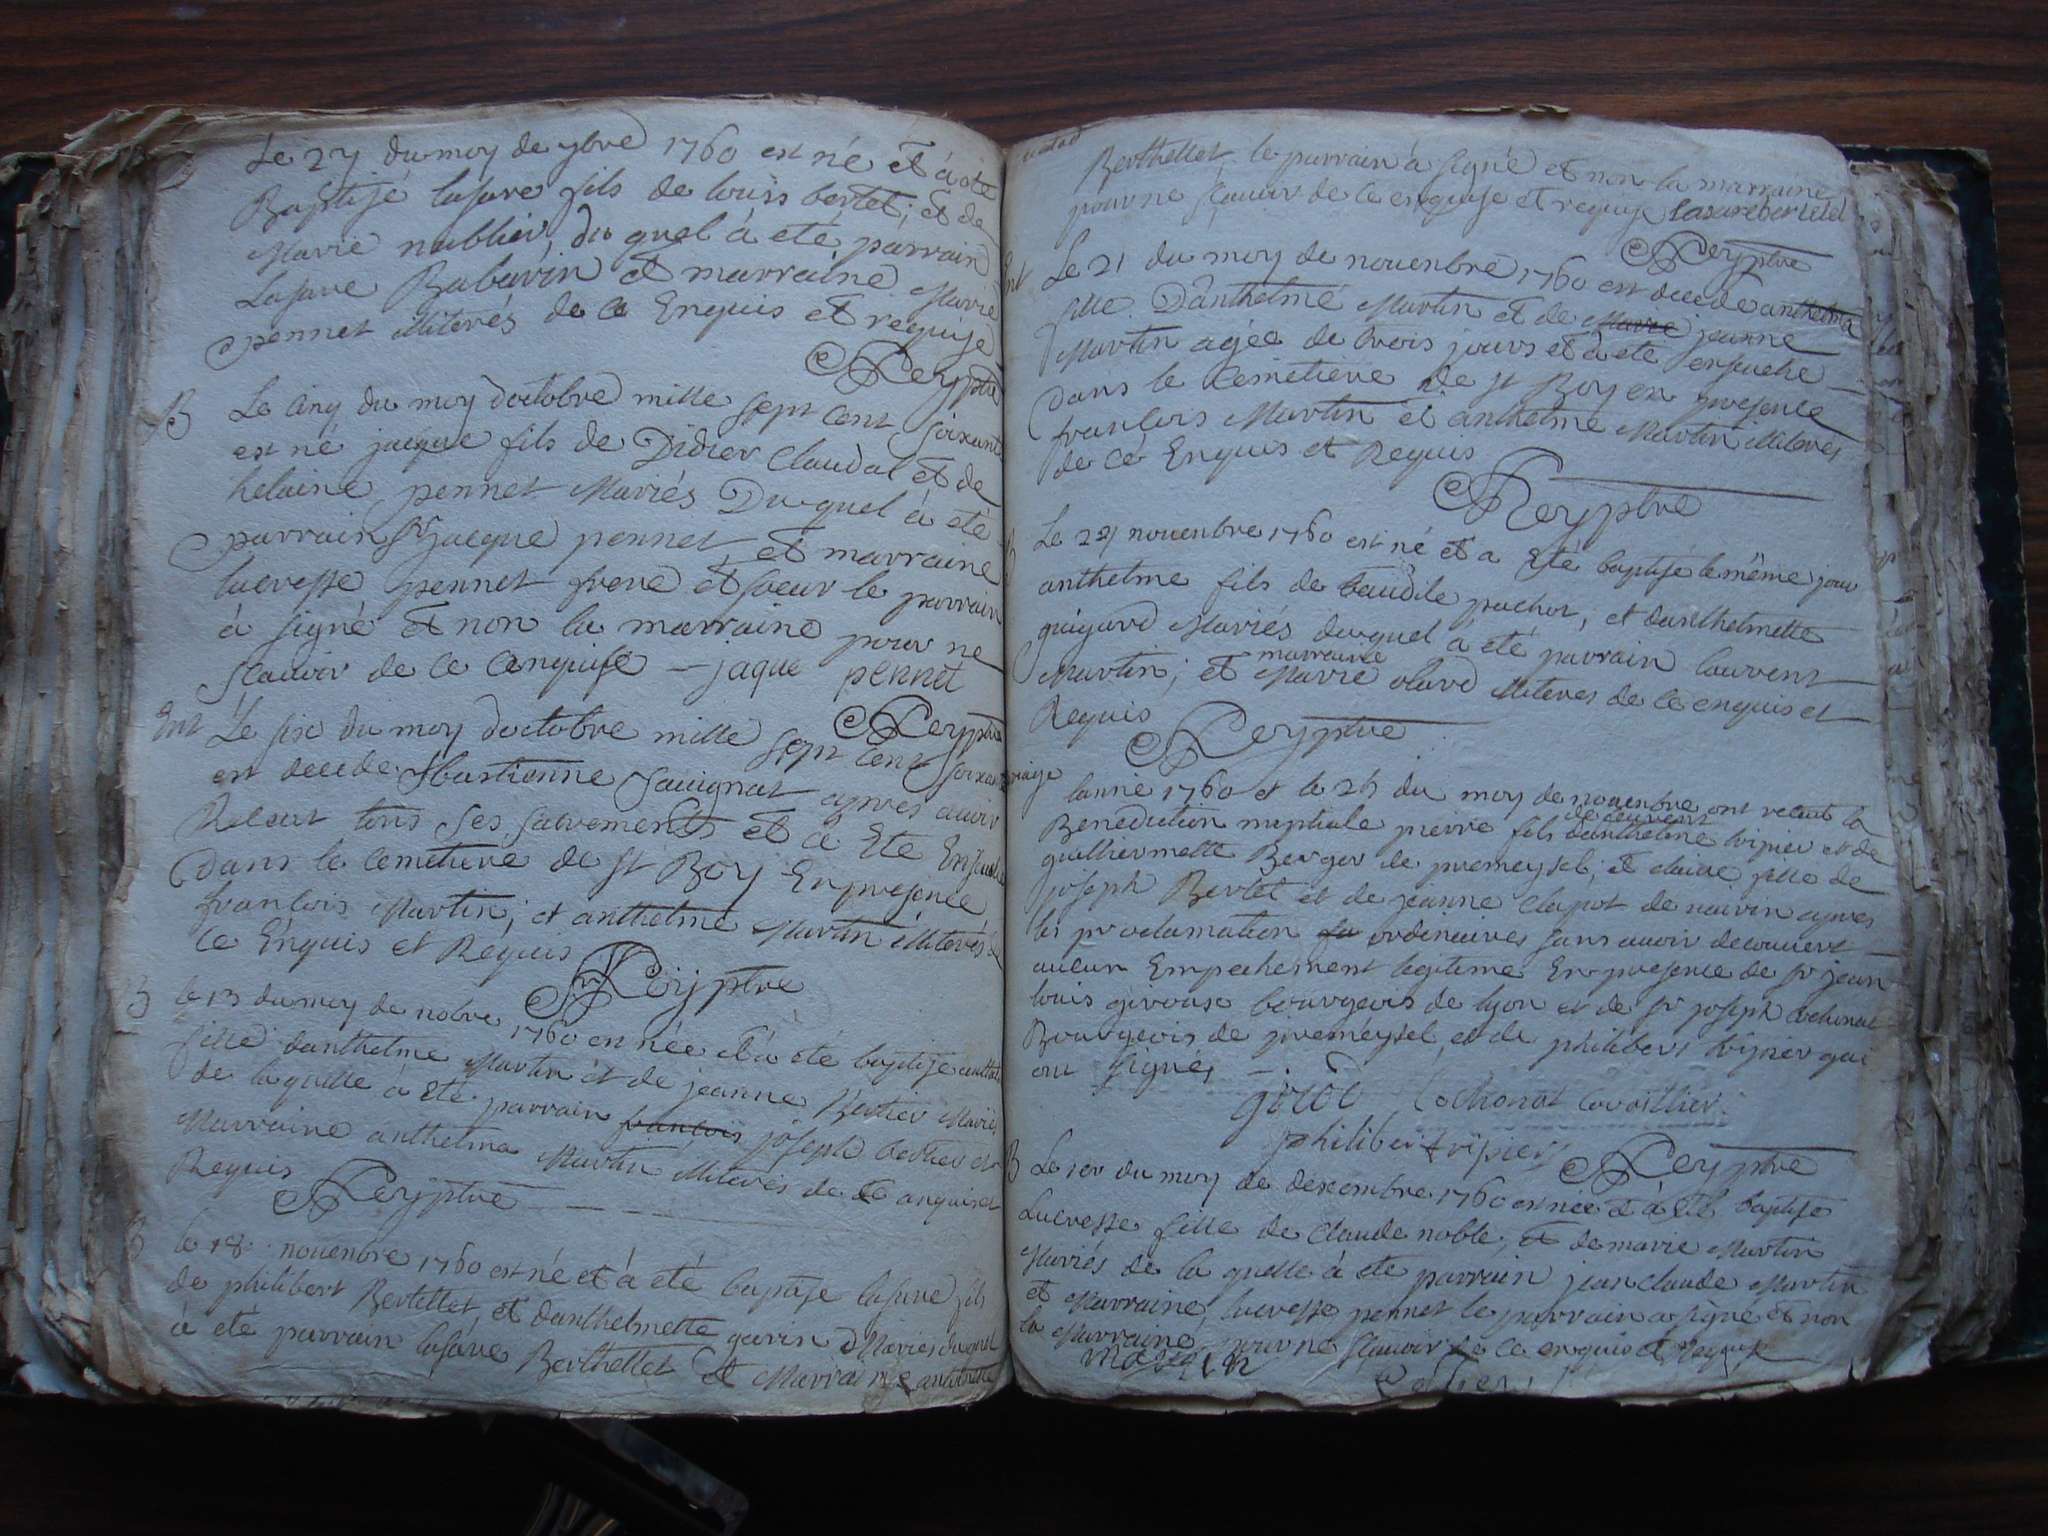 Le 27 du moy de 7bre 1760 est né et à eté
Baptisé lasare fils de louis bertet; et de
Marie nublier, du quel à eté parrain
Lasare Babuvin et marraine Marie
pennet illiterés de ce Enquis et requise
Rey ptre
B
Le cinq du moy doctobre mille sept cent soixante
est né jacque fils de Didier Claudal et de
helaine pennet Mariés Duquel à eté
parrain Sr jacque pennet, et marraine
lucresse pennet frere et soeur le parrain
à signé et non la marraine pour ne
scauoir de ce enquise — jaque pennet
Rey ptre
Ent
Le six du moy doctobre mille sept cent soixante
est decede sbastienne Sauignat apres auoir
Recut tous ses sacrements et à Eté Enseueli
Dans le cemetiere de st Boy En presence
francois Martin; et anthelme Martin illiterés de
ce Enquis et Requis
Rey ptre
B
le 13 du moy de nobre 1760 est née et à eté baptisé
fille danthelme Martin et de jeanne Bertier Mariés
de laquelle à Eté parrain francois joseph bertier et
Marraine anthelma Martin illiterés de ce anquis et
Requis
Rey ptre
B
le 18 nouenbre 1760 est né et à eté baptise lasare fils
de philibert Bertellet, et danthelmette gavin Mariés duquel
à eté parrain lasare Berthellet et Marraine anthelmette
Berthellet le parrain à signé et non la marraine
pour ne scauoir de ce enquise et requise lasare bertelet
Rey ptre
Ent
Le 21 du moy de nouenbre 1760 est decedé anthelma
fille Danthelme Martin et de Marie jeanne
Martin agée de trois jours et à eté enseuelie
Dans le cemetiere de st Boy en presence
francois Martin et anthelme Martin illiterés
de ce Enquis et Requis
Rey ptre
B
Le 27 nouenbre 1760 est né et a Eté baptisé le même jour
anthelme fils de baudile pachot, et danthelmette
guigard Mariés duquel à été parrain laurent
Martin; et marraine Marie olard illiteres de ce enquis et
Requis
Rey ptre
mariage
lanné 1760 et le 25 du moy de nouenbre ont recut la
Benediction nuptiale pierre fils danthelme tripier et de
guilhermette Berger de premeysel; et claire fille de
joseph Bertet et de jeanne clapot de nairin apres
les proclamation ordinaires sans auoir decouuert
aucun Empechement legitime En presence de sr jean
louis girouse bourgeois de lyon et de sr joseph cochonat
Bourgeois de premeysel et de philibert tripier qui
ont signés
girod Cochonat Cavaillier
philibert tripier
Rey ptre
B
Le 1er du moy de desembre 1760 est née et à Eté baptise
Lucresse fille de Claude noble, et de marie Martin
Mariés de la quelle à eté parrain jean claude Martin
et Marraine lucresse pennet le parrain a signé et non
la Marraine pour ne scauoir de ce enquis et Requise
Martin